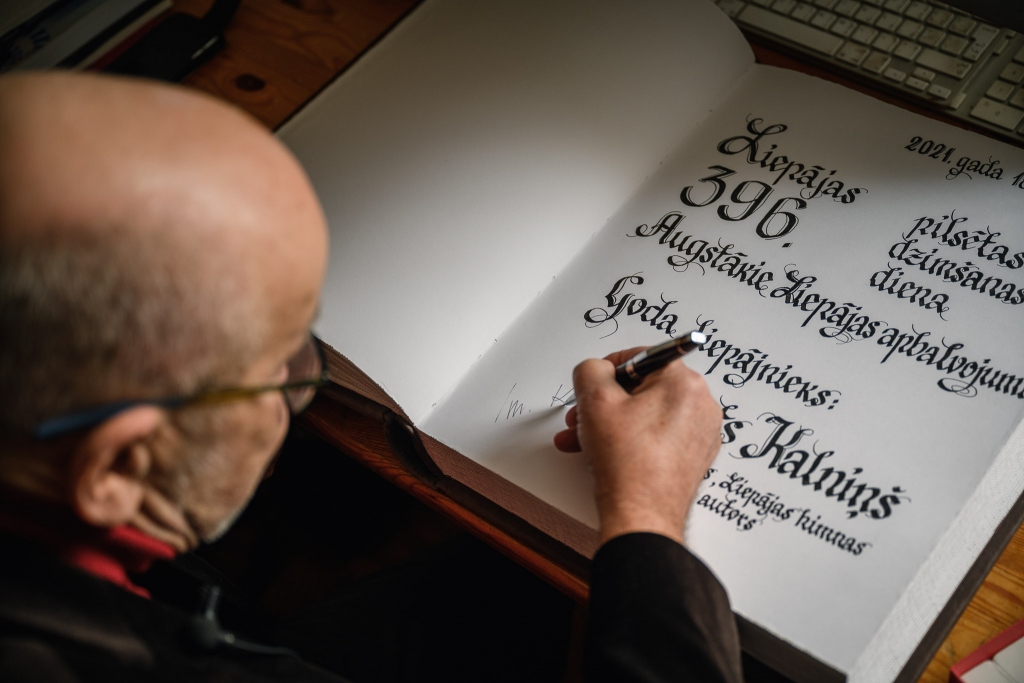 2021. gada
Liepājas
396.
pilsētas
dzimšanas
diena
Augstākie Liepājas apbalvojum
Goda liepājnieks:
Kalniņš
Liepājas himnas
autors
Im. K